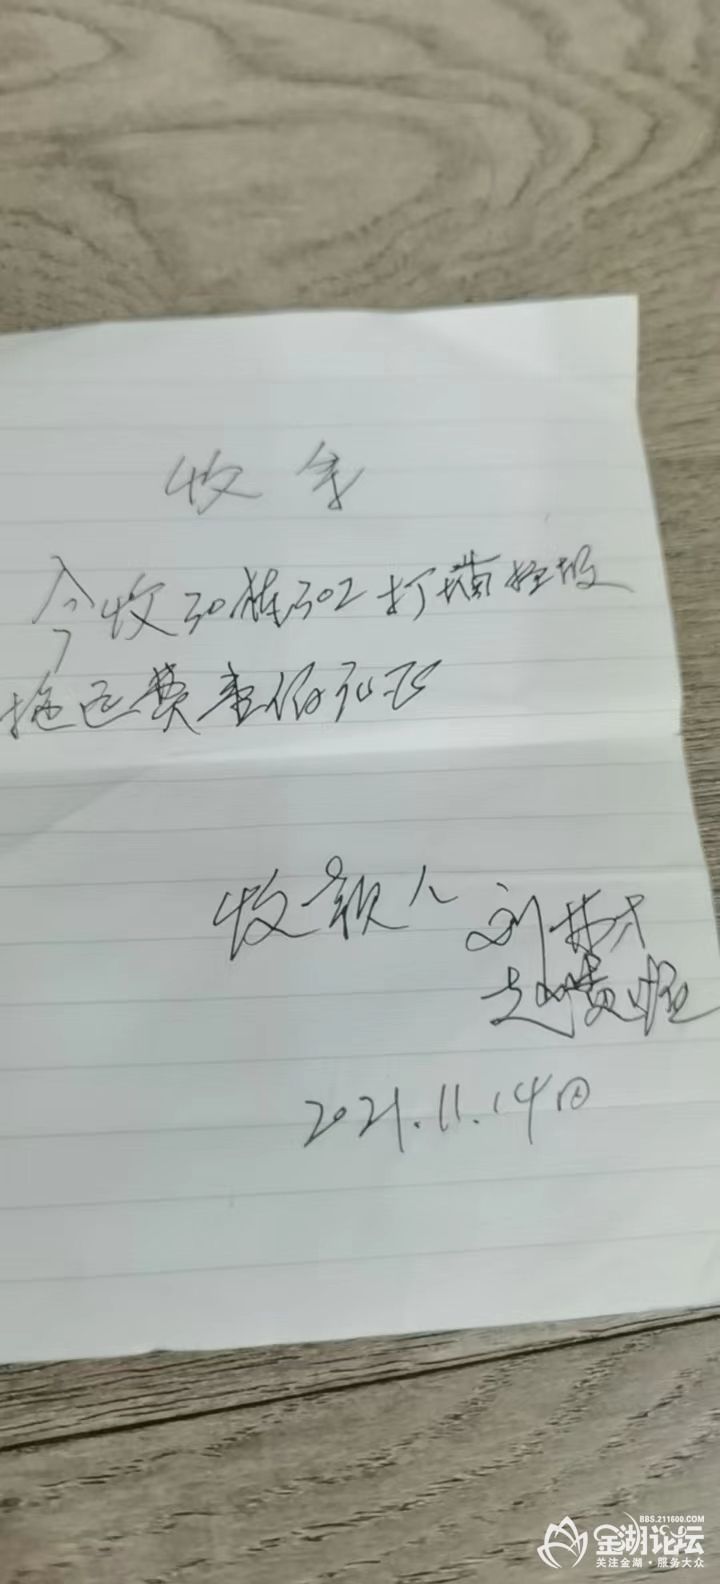 收条
今收30栋302打墙垃圾
拖运费壹佰元正
收款人 刘
赵
2021.11.14日
BBS.211600.COM
金湖论坛
关注金湖·服务大众